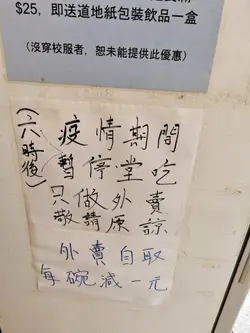 $25，即送道地紙包裝飲品一盒
(沒穿校服者，恕未能提供此優惠)
(六時後)
疫情期間
暫停堂吃
只做外賣
敬請原諒
外賣自取
每碗減一元